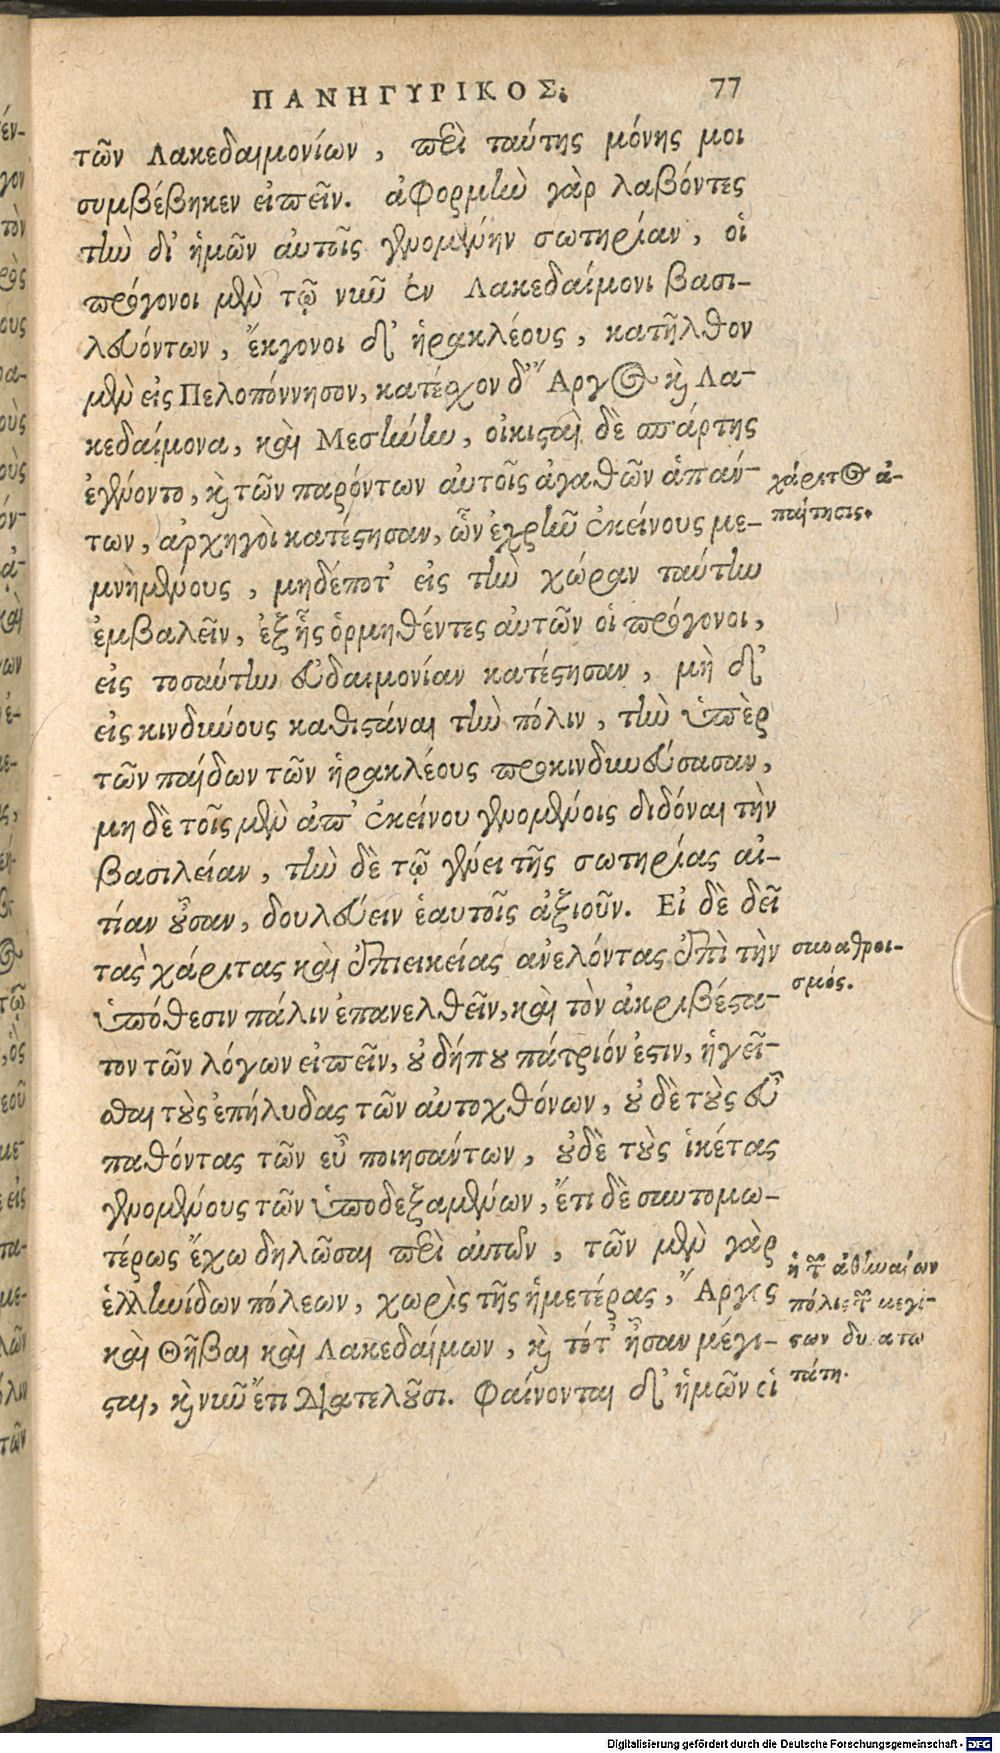 ΠΑΝΗΓΥΡΙΚΟΣ. 77
τῶν Λακεδαιμονίων, περὶ ταύτης μόνης μοι
συμβέβηκεν εἰπεῖν. ἀφορμὴν γὰρ λαβόντες
τὴν δι' ἡμῶν αὐτοῖς γενομένην σωτηρίαν, οἱ
πρόγονοι μὲν τῶν νῦν ἐν Λακεδαίμονι βασι-
λευόντων, ἔκγονοι δ' ἡρακλέους, κατῆλθον
μὲν εἰς Πελοπόννησον, κατέσχον δ' Ἄργος καὶ Λα-
κεδαίμονα, καὶ Μεσήνην, οἰκισταὶ δὲ σπάρτης
ἐγένοντο, καὶ τῶν παρόντων αὐτοῖς ἀγαθῶν ἁπάν-
των, ἀρχηγοὶ κατέστησαν, ὧν ἐχρῆν ἐκείνους με-
μνημένους, μηδέποτ' εἰς τὴν χώραν ταύτην
ἐμβαλεῖν, ἐξ ἧς ὁρμηθέντες αὐτῶν οἱ πρόγονοι,
εἰς τοσαύτην εὐδαιμονίαν κατέστησαν, μὴ δ'
εἰς κινδύνους καθιστάναι τὴν πόλιν, τὴν ὑπὲρ
τῶν παίδων τῶν ἡρακλέους προκινδυνεύσασαν,
μη δὲ τοῖς μὲν ἀπ' ἐκείνου γενομένοις διδόναι τὴν
βασιλείαν, τὴν δὲ τῷ γένει τῆς σωτηρίας αἰ-
τίαν οὖσαν, δουλεύειν ἑαυτοῖς ἀξιοῦν. Εἰ δὲ δεῖ
τὰς χάριτας καὶ ἐπιεικείας ἀνελόντας ἐπὶ τὴν
ὑπόθεσιν πάλιν ἐπανελθεῖν, καὶ τὸν ἀκριβέστα-
τον τῶν λόγων εἰπεῖν, οὐ δήπου πάτριόν ἐστιν, ἡγεῖ-
σθαι τοὺς ἐπήλυδας τῶν αὐτοχθόνων, οὐ δὲ τοὺς εὖ
παθόντας τῶν εὖ ποιησάντων, οὐδὲ τοὺς ἱκέτας
γενομένους τῶν ὑποδεξαμένων, ἔτι δὲ συντομω-
τέρως ἔχω δηλῶσαι περὶ αὐτῶν, τῶν μὲν γὰρ
ἑλληνίδων πόλεων, χωρὶς τῆς ἡμετέρας, Ἄργος
καὶ Θῆβαι καὶ Λακεδαίμων, καὶ τότ' ἦσαν μέγι-
σται, καὶ νῦν ἔτι διατελοῦσι. Φαίνονται δ' ἡμῶν οἱ
χάριτος ἀ-
παίτησις.
συναθροι-
σμός.
ἡ τῶν ἀθηναίων
πόλις τῶν μεγί-
στων δυνατω
τάτη.
Digitalisierung gefördert durch die Deutsche Forschungsgemeinschaft - DFG